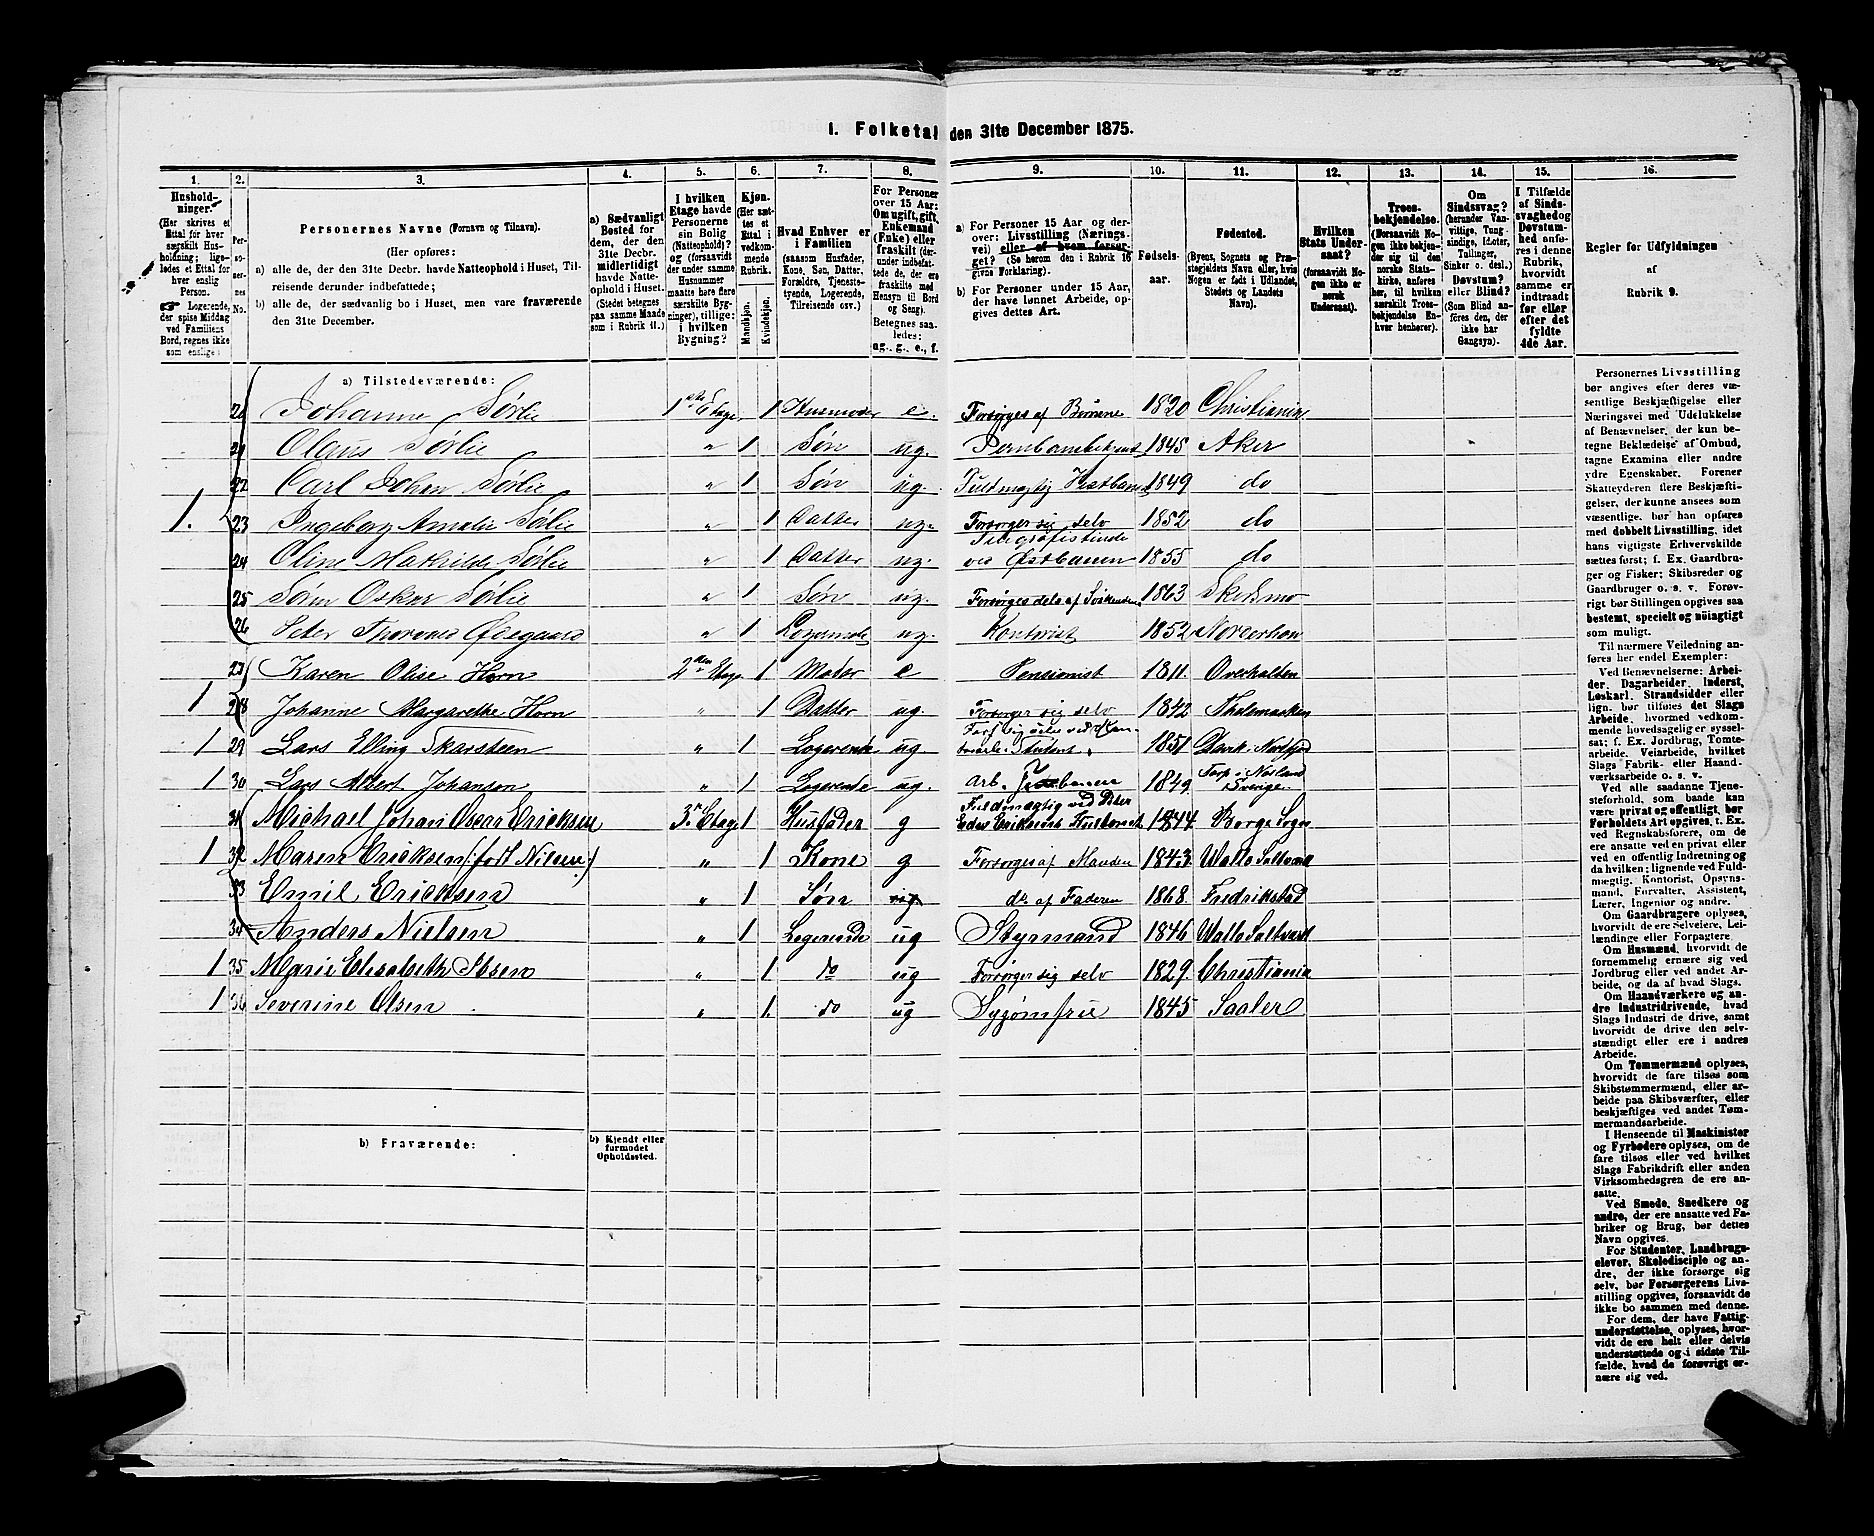 I. Folketal den 31te December 1875.
1. 2. 3. 4. 5. 6. 7. 8. 9. 10. 11. 12. 13. 14. 15. 16.
Husholdninger.
(Her skrives et
Ettal for hver
særskilt Husholdning;
ligeledes
et Ettal for
hver enslig
Person.
Logerende,
der spise Middag
ved Familiens
Bord, regnes ikke
som enslige.
Personernes No.
Personernes Navne (Fornavn og Tilnavn).
(Her opføres:
a) alle de, der den 31te Decbr. havde Natteophold i Huset, Tilreisende
derunder indbefattede;
b) alle de, der sædvanlig bo i Huset, men vare fraværende
den 31te December.
a) Sædvanligt
Bosted for
dem, der den
31te Decbr.
midlertidigt
havde Natteophold
i Huset.
(Stedet betegnes
paa samme Maade
som i Rubrik 11.)
I hvilken
Etage havde
Personerne
sin Bolig
(Natteophold)?
og (forsaavidt
der under samme
Husnummer
maatte høre flere
særskilte Bygninger),
tillige:
i hvilken
Bygning?
Kjøn.
(Her sættes
et
Ettal i
vedkommende
Rubrik.
Mandkjøn.
Kvindekjøn.
Hvad Enhver er
i Familien
(saasom Husfader,
Kone, Søn, Datter,
Forældre, Tjenestetyende,
Logerende,
Tilreisende osv.)
For Personer
over 15 Aar:
Om ugift, gift,
Enkemand
(Enke) eller
fraskilt (derunder
indbefattede
de, der ere
fraskilte med
Hensyn til Bord
og Seng).
Betegnes saaledes:
ug., g., e., f.
a) For Personer 15 Aar og derover:
Livsstilling (Næringsvei)
eller af hvem forsørget?
(Se herom den i Rubrik 16
givne Forklaring).
b) For Personer under 15 Aar,
der have lønnet Arbeide, opgives
dettes Art.
Fødselsaar.
Fødested.
(Byens, Sognets og Præstegjeldets
Navn eller, hvis
Nogen er født i Udlandet,
Stedets og Landets
Navn).
Hvilken
Stats Undersaat?
(forsaavidt Nogen
ikke er
norsk
Undersaat).
Troesbekjendelse.
(Forsaavidt Nogen
ikke bekjender
sig til den
norske Statskirke,
anføres
her, til hvilken
særskilt Troesbekjendelse
Enhver
henhører).
Om
Sindssvag?
(herunder Vanvittige,
Tungsindige,
Idioter,
Tullinger,
Sinker o. desl.)
Døvstum?
eller Blind?
(Som Blind anføres
den, der
ikke har
Gangsyn).
I Tilfælde
af Sindssvaghed
og
Døvstumhed
anføres
i denne
Rubrik,
hvorvidt
samme er
indtraadt
før eller
efter det
fyldte
4de Aar.
Regler for Udfyldningen
af
Rubrik 9.
a) Tilstedeværende:
20 Johanne Sørlie 1ste Etage 1 Husmoder e. Forsørges af Børnene 1820 Christiania
21 Olaus Sørlie " 1 Søn ug. 1845 Aker
22 Carl Johan Sørlie " 1 Søn ug. Fuldmægtig 1849 do
1. 23 Ingeborg Amalie Sørlie " 1 Datter ug. Forsørger sig selv 1852 do
24 Oline Mathilde Sørlie " 1 Datter ug. Telegrafistinde ved Østbanen 1855 do
25 Sørin Oskar Sørlie " 1 Søn ug. Forsørges dels af Søskende 1863 Skedsmo
26 Peter Ødegaard " 1 Logerende ug. Kontorist 1852 Norderhon
27 Karen Olise Horn 2den Etage 1 Moder e Pensionist 1811. Overhalden
1 28 Johanne Margarethe Horn " 1 Datter ug. Forsørger sig selv 1842 Thelemarken
1 29 Lars Elling Skarsteen " 1 Logerende ug. Student. 1851
1 30 Lars Albert Johanson " 1 Logerende ug. Arb. 1849 Sverige
31 Michael Johan Oscar Ericksen 3 Etage 1 Husfader g Fuldmægtig ved 1844. Borge Sogn
1 32 Maren Ericksen (født Nilsen.) " 1 Kone g Forsørges af Manden 1843.
33 Emil Ericksen " 1 Søn ug do af Faderen 1868. Fredrikstad
34 Anders Nielsen " 1 Logerende ug Styrmand 1846
1 35 Marie Elisabeth Ibsen " 1 do ug Forsørger sig selv 1829. Christiania
1 36 Severine Olsen " 1. do ug 1845
b) Fraværende:
b) Kjendt eller
formodet
Opholdssted.
Personernes Livsstilling
bør angives efter deres væsentlige
Beskjæftigelse eller
Næringsvei med Udelukkelse
af Benævnelser, der kun betegne
Beklædelse af Ombud,
tagne Examina eller andre
ydre Egenskaber. Forener
Skatteyderen flere Beskjæftigelser,
der kunne ansees som
væsentlige, bør han opføres
med dobbelt Livsstilling, idet
hans vigtigste Erhvervskilde
sættes først; f. Ex. Gaardbruger
og Fisker; Skibsreder og
Gaardbruger o. s. v. Forøvrigt
bør Stillingen opgives saa
bestemt, specielt og nøiagtigt
som muligt.
Til nærmere Veiledning anføres
her endel Exempler:
Ved Benævnelserne: Arbeider,
Dagarbeider, Inderst,
Løskarl, Strandsidder eller
lign. bør tilføies det Slags
Arbeide, hvormed vedkommende
hovedsagelig er sysselsat;
f. Ex. Jordbrug, Tomtearbeide,
Veiarbeide, hvilket
Slags Fabrik- eller Haandværksarbeide
o. s. v.
Ved alle saadanne Tjenesteforhold,
som baade kan
være privat og offentligt, bør
Forholdets Art opgives, f. Ex.
ved Regnskabsførere, om de
ere ansatte ved en privat eller
ved en offentlig Indretning og
da hvilken; lignende ved Fuldmægtig,
Kontorist, Opsynsmand,
Forvalter, Assistent,
Lærer, Ingeniør og andre.
Om Gaardbrugere oplyses,
hvorvidt de ere Selveiere, Leilændinge
eller Forpagtere.
Om Husmænd, hvorvidt de
fornemmelig ernære sig ved
Jordbrug eller ved andet Arbeide,
og da af hvad Slags.
Om Haandværkere og andre
Industridrivende, hvad
Slags Industri de drive, samt
hvorvidt de drive den selvstændigt
eller ere i andres
Arbeide.
Om Tømmermænd oplyses,
hvorvidt de fare tilsøs som
Skibstømmermænd, eller arbeide
paa Skibsværfter, eller
beskjæftiges ved andet Tømmermandsarbeide.
I Henseende til Maskinister
og Fyrbødere oplyses, om de
fare tilsøs eller ved hvilket
Slags Fabrikdrift eller anden
Virksomhedsgren de ere ansatte.
Ved Smede, Snedkere og
andre, der ere ansatte ved Fabriker
og Brug, bør dettes
Navn opgives.
For Studenter, Landbrugselever,
Skoledisciple og andre,
der ikke forsørge sig
selv, bør Forsørgerens Livsstilling
opgives, forsaavidt de
ikke bo sammen med denne.
For dem, der have Fattigunderstøttelse,
oplyses, hvorvidt
de ere helt eller delvis
understøttede og i sidste Tilfælde,
hvad de forøvrigt ernære
sig ved.